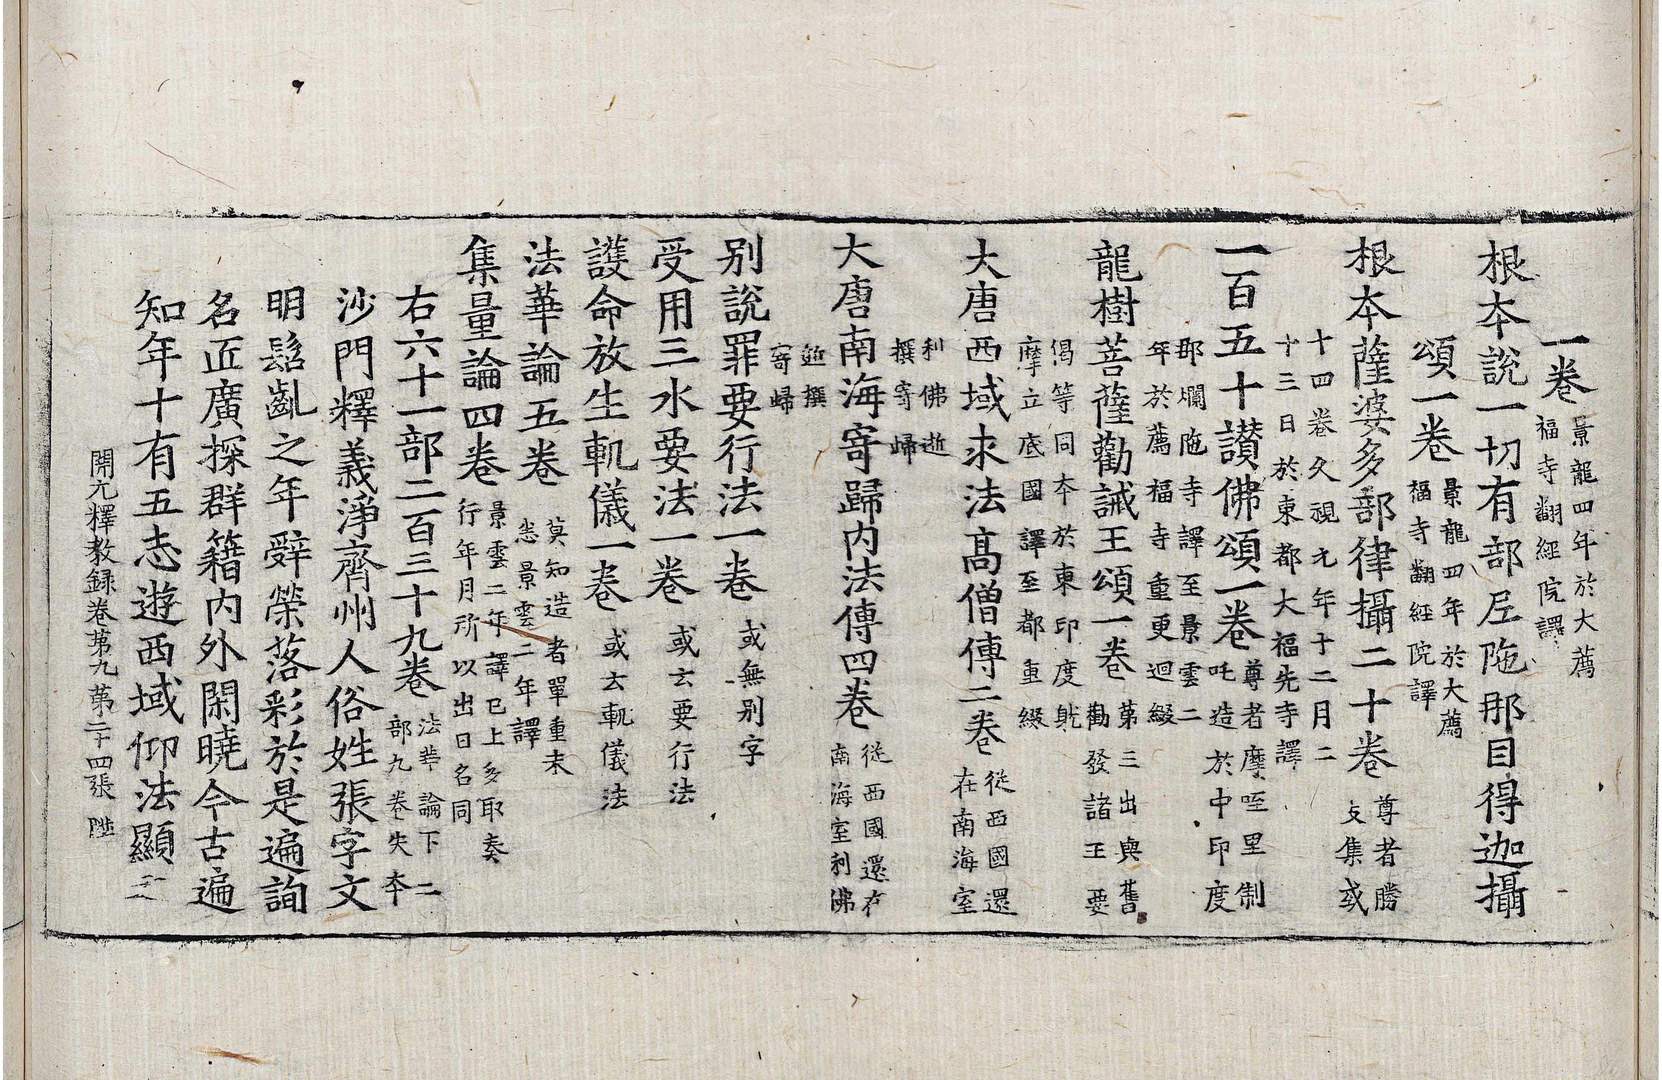 一卷景龍四年於大薦
福寺翻經院譯
根本說一切有部尼陁那目得迦攝
頌一卷景龍四年於大薦
福寺翻經院譯
根本薩婆多部律攝二十卷尊者勝
友集或
十四卷久視元年十二月二
十三日於東都大福先寺譯
一百五十讃佛頌一卷尊者摩咥里制
吒造於中印度
那爛陁寺譯至景雲二
年於薦福寺重更迴綴
龍樹菩薩勸誡王頌一卷第三出與舊
勸發諸王要
偈等同本於東印度躭
摩立底國譯至都重綴
大唐西域求法高僧傳二卷從西國還
在南海室
利佛逝
撰寄歸
大唐南海寄歸内法傳四卷從西國還在
南海室利佛
逝撰
寄歸
别說罪要行法一卷或無别字
受用三水要法一卷或云要行法
護命放生軌儀一卷或云軌儀法
法華論五卷莫知造者單重未
悉景雲二年譯
集量論四卷景雲二年譯已上多取奏
行年月所以出日名同
右六十一部二百三十九卷法華論下二
部九卷失本
沙門釋義淨齊州人俗姓張字文
明髫齓之年辤榮落彩於是遍詢
名匠廣探群籍内外閑曉今古遍
知年十有五志遊西域仰法顯
開元釋教録卷第九第二十四張陛